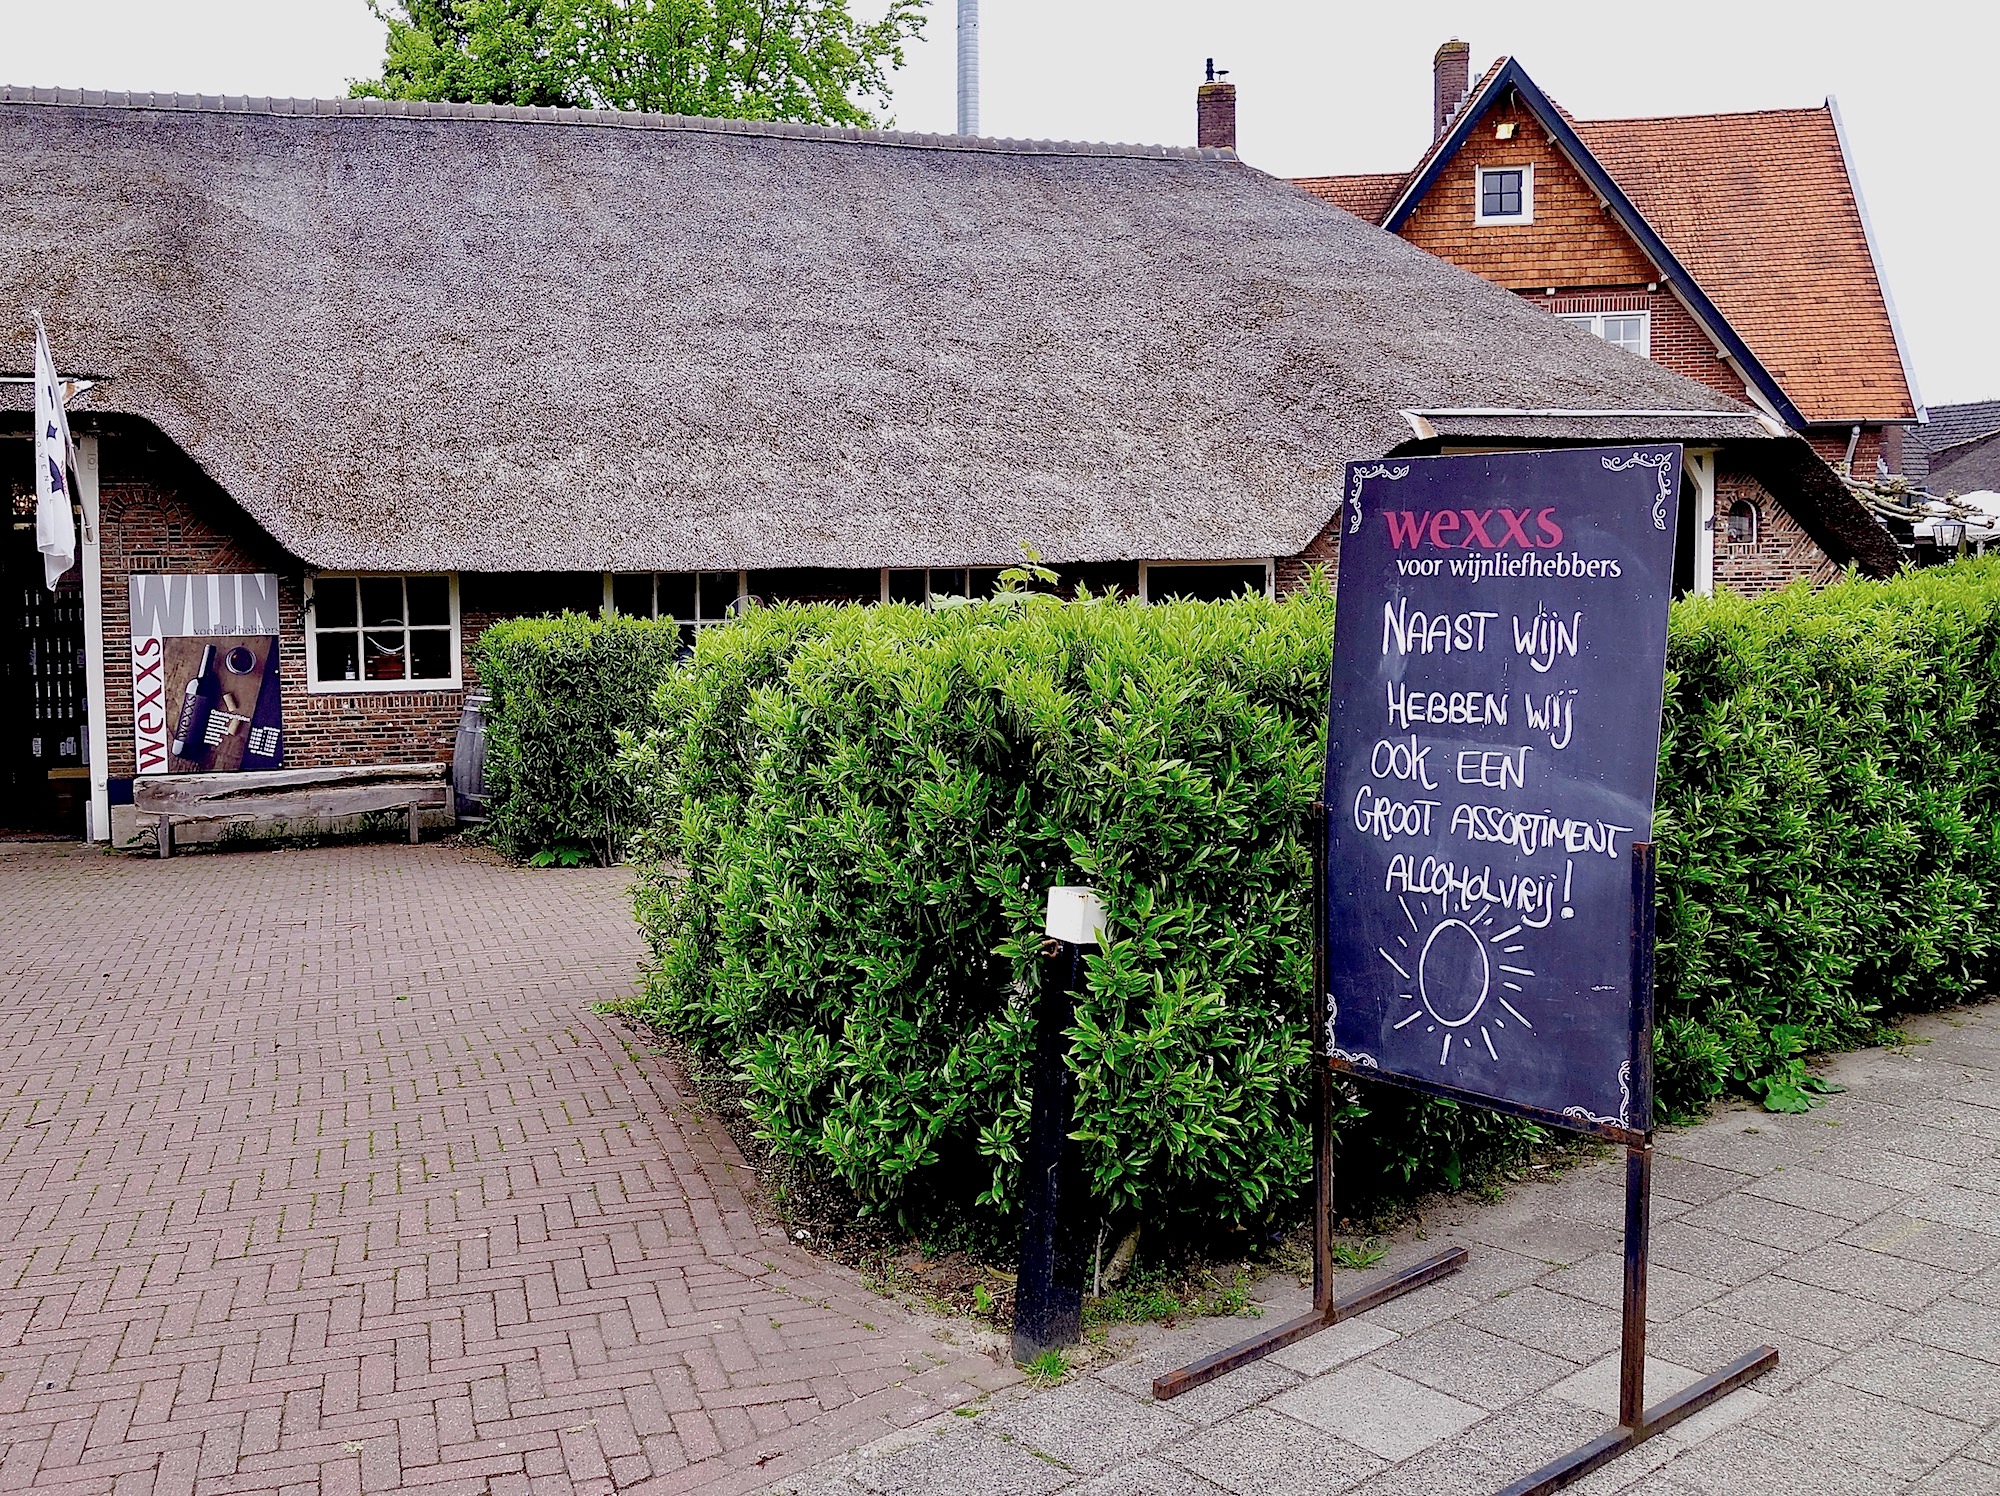 wexxs
voor wijnliefhebbers
NAAST WIJN
HEBBEN WIJ
OOK EEN
GROOT ASSORTIMENT
ALCOHOLVRIJ!
WIJN
voor liefhebbers
wexxs
wexxs